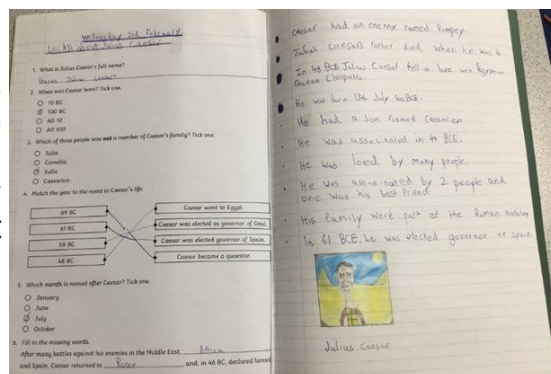 Wednesday 2nd February
LO: All about Julius Caesar
1. What is Julius Caesar's full name?
Gaius Julius Caesar
2. When was Caesar born? Tick one.
10 BC
100 BC
AD 10
AD 100
3. Which of these people was not a member of Caesar's family? Tick one.
Julia
Cornelia
Sulla
Caesarion
4. Match the year to the event in Caesar's life.
69 BC
61 BC
58 BC
48 BC
Caesar went to Egypt.
Caesar was elected as governor of Gaul.
Caesar was elected governor of Spain.
Caesar became a quaestor.
5. Which month is named after Caesar? Tick one.
January
June
July
October
6. Fill in the missing words.
After many battles against his enemies in the Middle East, African
and Spain, Caesar returned to Rome and, in 46 BC, declared himself
Caesar had an enemy named Pompey.
Julius Caesars father died when he was 16
In 48 BCE Julius Caesar fell in love with Egyptian
Queen Cleopatra.
He was born 12th July 100 BCE.
He had a son named Caesarion
He was assasinated in 44 BCE.
He was loved by many people.
He was assasinated by 2 people and
one was his best friend
His family were part of the Roman nobley
In 61 BCE, he was elected governor of spain
Julius Caesar